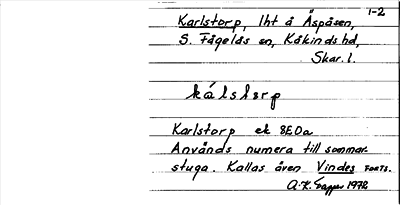 1-2
Karlstorp, lht å Äspåsen,
S. Fågelås sn, Kåkinds hd,
Skar. l.
kálstorp
Karlstorp ek 8E0a
Används numera till sommar-
stuga. Kallas även Vindes FORTS.
1972